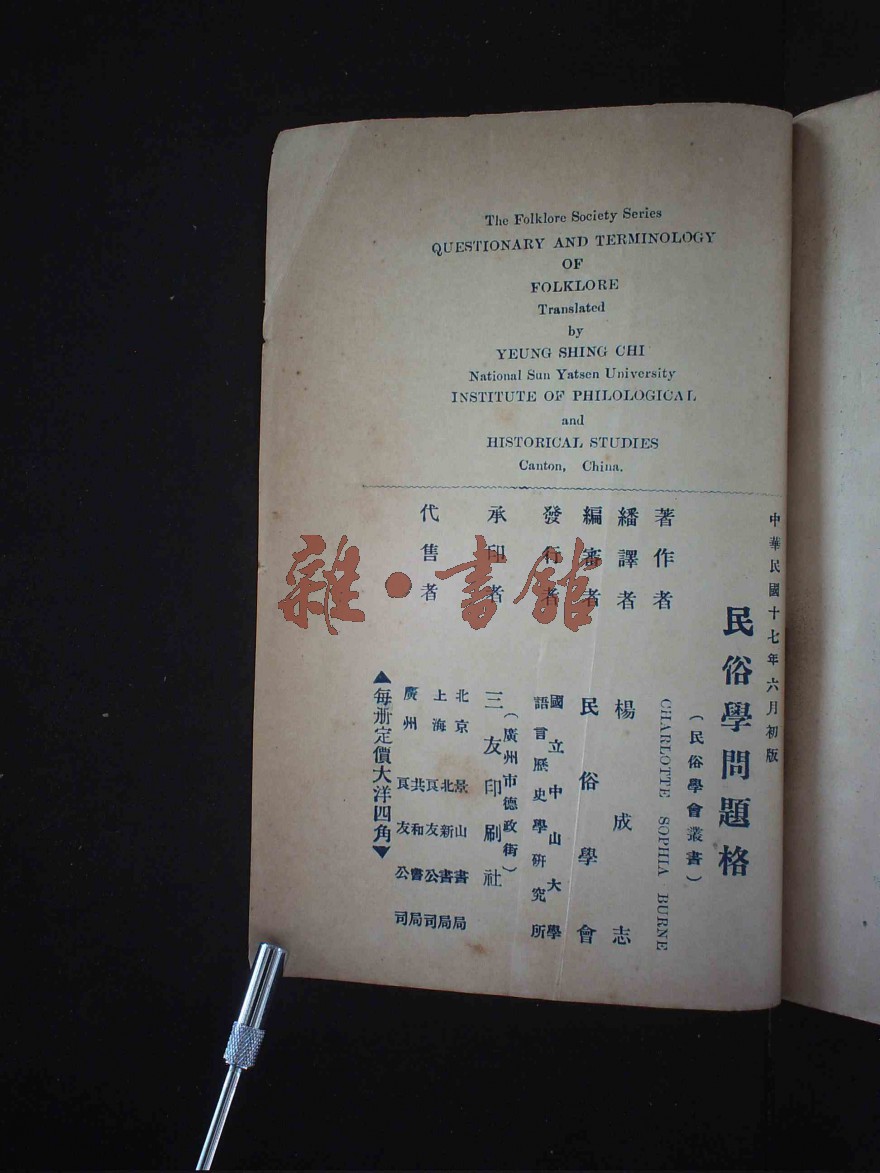 The Folklore Society Series
QUESTIONARY AND TERMINOLOGY
OF
FOLKLORE
Translated
by
YEUNG SHING CHI
National Sun Yatsen University
INSTITUTE OF PHILOLOGICAL
and
HISTORICAL STUDIES
Canton, China.
中華民國十七年六月初版
民俗學問題格
(民俗學會叢書)
著作者 CHARLOTTE SOPHIA BURNE
繙譯者 楊成志
編審者 民俗學會
發行者 國立中山大學
語言歷史學研究所
承印者 三友印刷社
(廣州市德政街)
代售者
北京 景山書局
上海 北新書局
良友公司
廣州 共和書局
良友公司
▲每册定價大洋四角▼
雜·書館